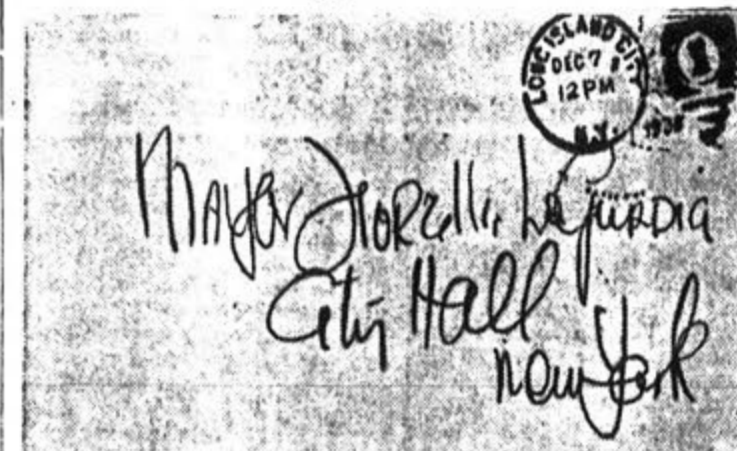 LONG ISLAND CITY
DEC 7
12 PM
N.Y.
1
Mayor Fiorelli LaJurdia
City Hall
New York